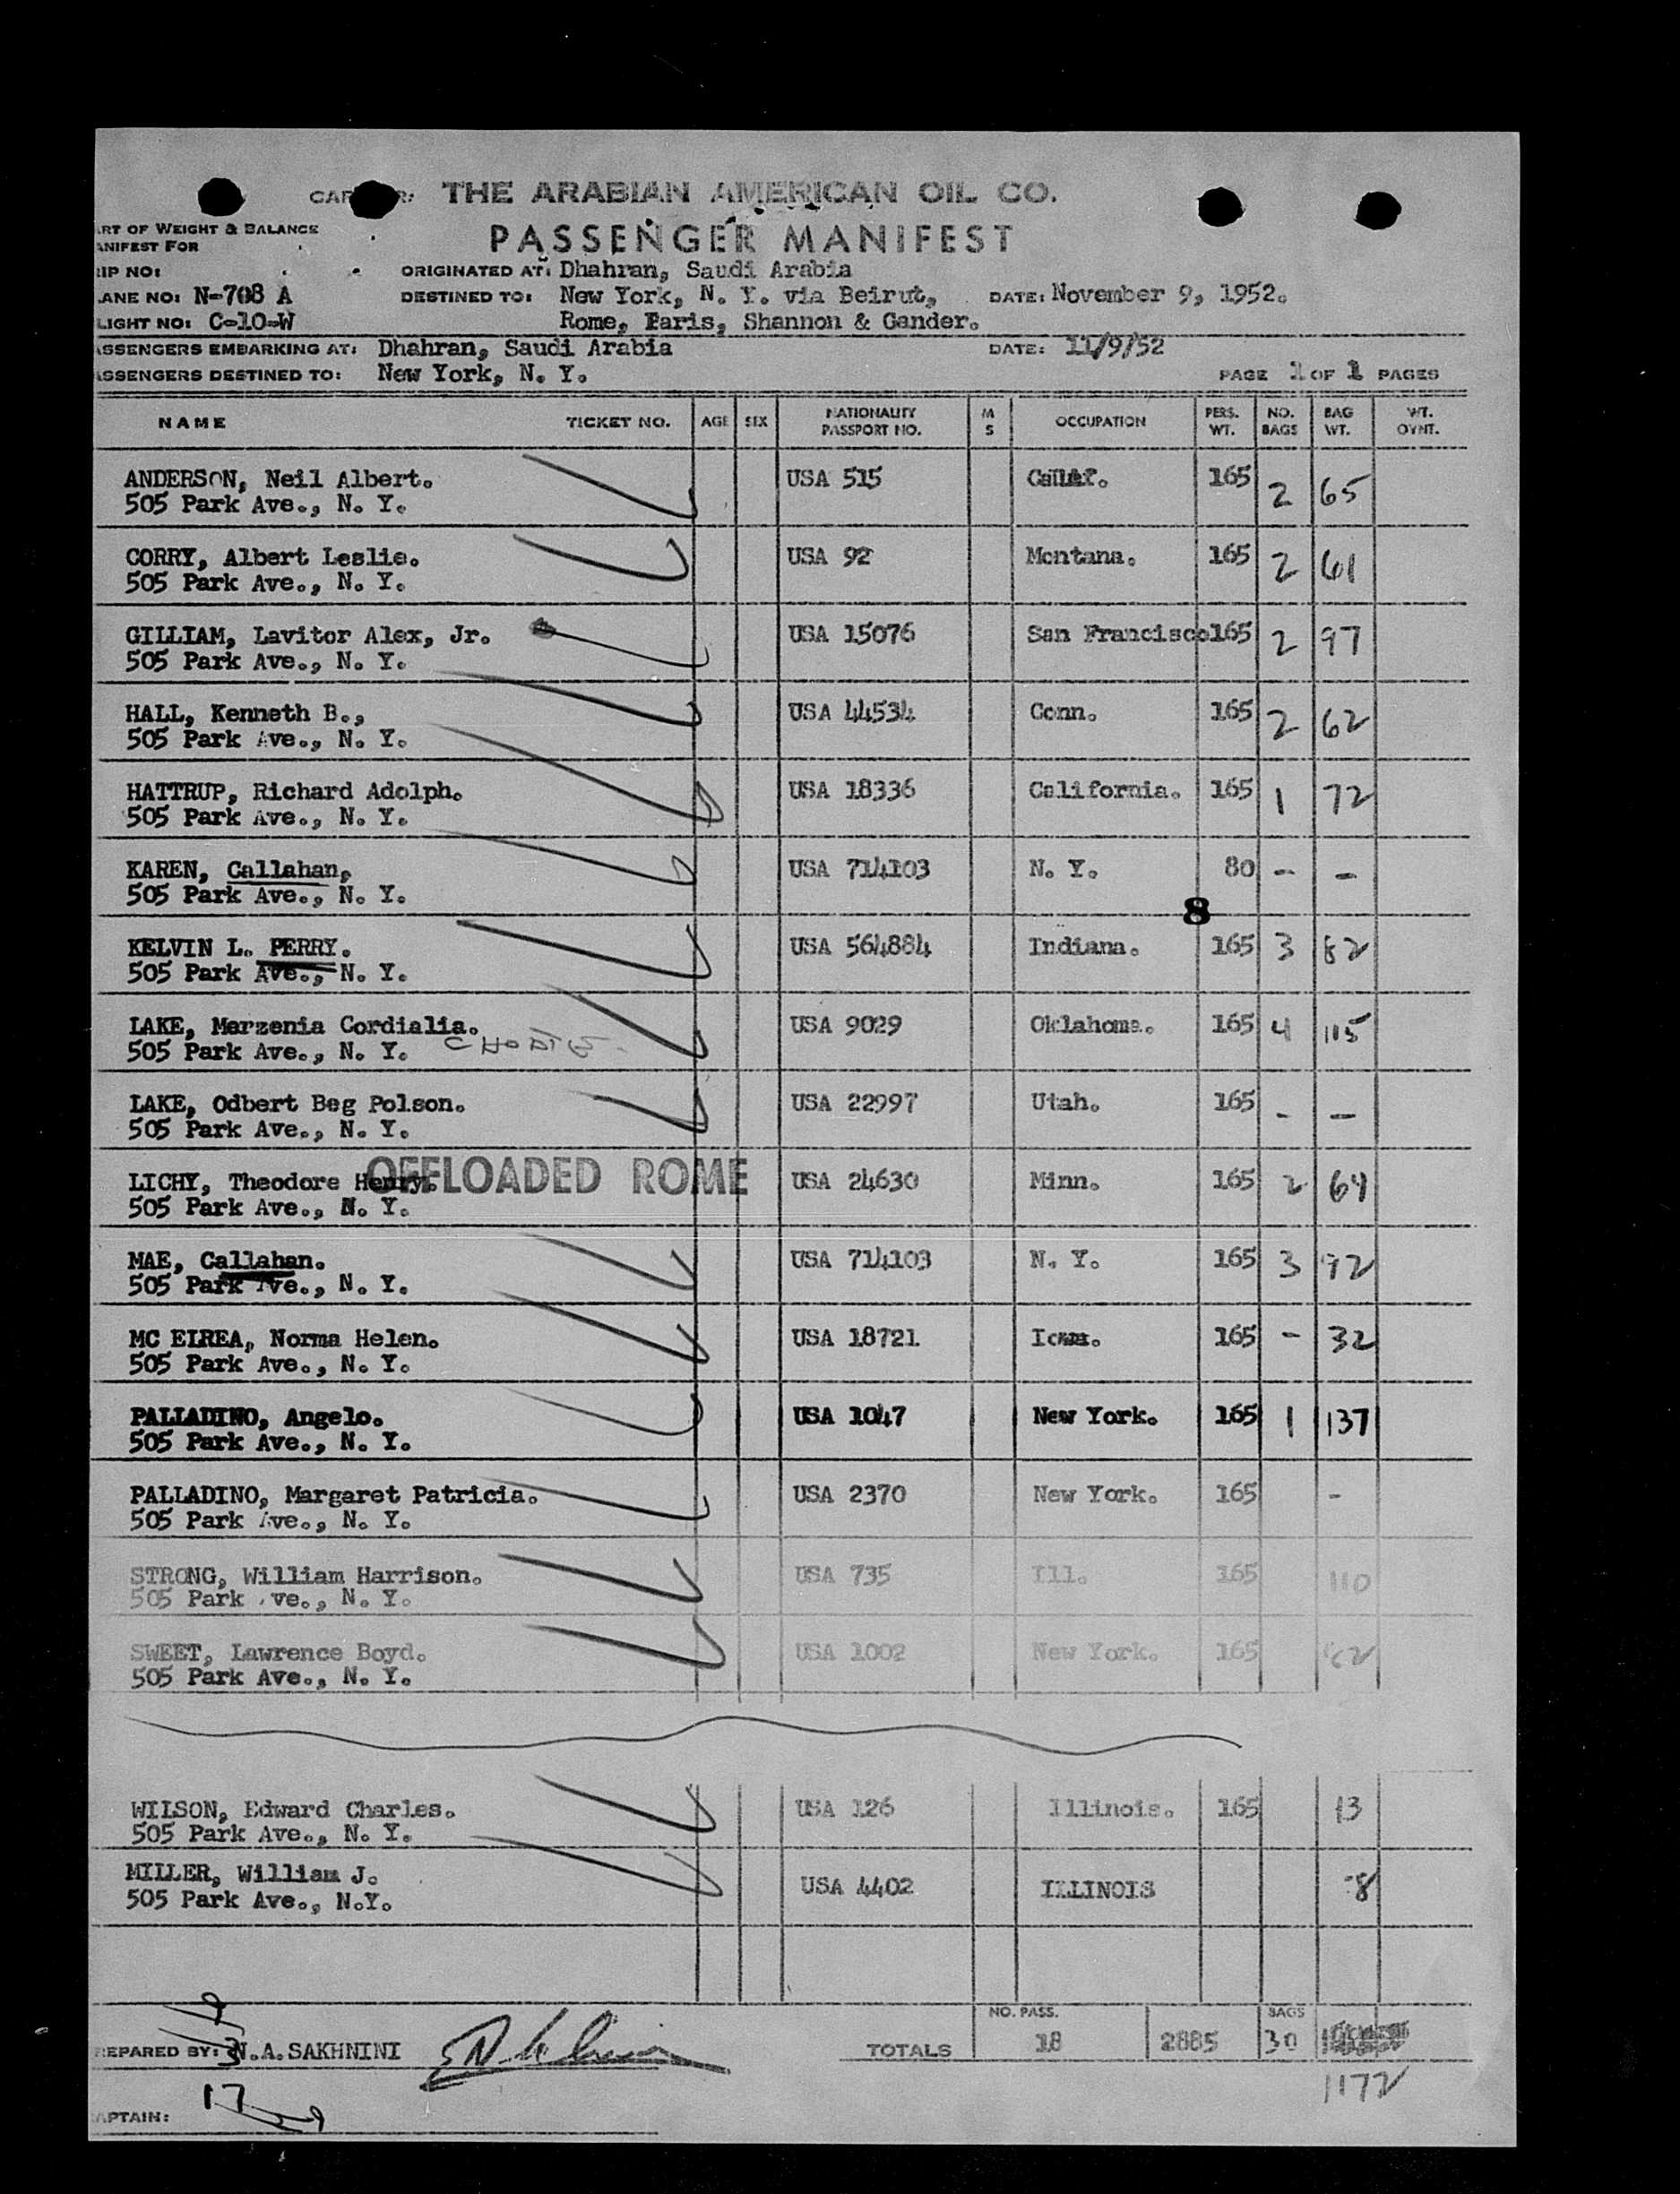 THE ARABIAN AMERICAN OIL CO.
PASSENGER MANIFEST
ART OF WEIGHT & BALANCE
ANIFEST FOR
IP NO:
ORIGINATED AT: Dhahran, Saudi Arabia
LANE NO: N-708 A
DESTINED TO: New York, N. Y. via Beirut, DATE: November 9, 1952.
LIGHT NO: C-10-W
Rome, Paris, Shannon & Gander.
ASSENGERS EMBARKING AT: Dhahran, Saudi Arabia DATE: 11/9/52
ASSENGERS DESTINED TO: New York, N. Y. PAGE 1 OF 1 PAGES
NAME TICKET NO. AGE SEX NATIONALITY PASSPORT NO. M S OCCUPATION PERS. WT. NO. BAGS BAG WT. WT. OVNT.
ANDERSON, Neil Albert. USA 515 Calif. 165 2 65
505 Park Ave., N. Y.
CORRY, Albert Leslie. USA 92 Montana. 165 2 61
505 Park Ave., N. Y.
GILLIAM, Lavitor Alex, Jr. USA 15076 San Francisco 165 2 97
505 Park Ave., N. Y.
HALL, Kenneth B., USA 44534 Conn. 165 2 62
505 Park Ave., N. Y.
HATTRUP, Richard Adolph. USA 18336 California. 165 1 72
505 Park Ave., N. Y.
KAREN, Callahan, USA 714103 N. Y. 80 - -
505 Park Ave., N. Y.
8
KELVIN L. PERRY. USA 564884 Indiana. 165 3 82
505 Park Ave., N. Y.
LAKE, Merzenia Cordialia. USA 9029 Oklahoma. 165 4 115
505 Park Ave., N. Y.
LAKE, Odbert Beg Polson. USA 22997 Utah. 165 - -
505 Park Ave., N. Y.
LICHY, Theodore Henry. OFFLOADED ROME USA 24630 Minn. 165 2 64
505 Park Ave., N. Y.
MAE, Callahan. USA 714103 N. Y. 165 3 92
505 Park Ave., N. Y.
MC EIREA, Norma Helen. USA 18721 Iowa. 165 - 32
505 Park Ave., N. Y.
PALLADINO, Angelo. USA 1047 New York. 165 1 137
505 Park Ave., N. Y.
PALLADINO, Margaret Patricia. USA 2370 New York. 165 -
505 Park Ave., N. Y.
STRONG, William Harrison. USA 735 Ill. 165 110
505 Park ve., N. Y.
SWEET, Lawrence Boyd. USA 1002 New York. 165
505 Park Ave., N. Y.
WILSON, Edward Charles. USA 126 Illinois. 165 13
505 Park Ave., N. Y.
MILLER, William J. USA 4402 ILLINOIS 8
505 Park Ave., N.Y.
NO. PASS. BAGS
REPARED BY: N.A.SAKHNINI TOTALS 18 2885 30
1172
17
APTAIN: